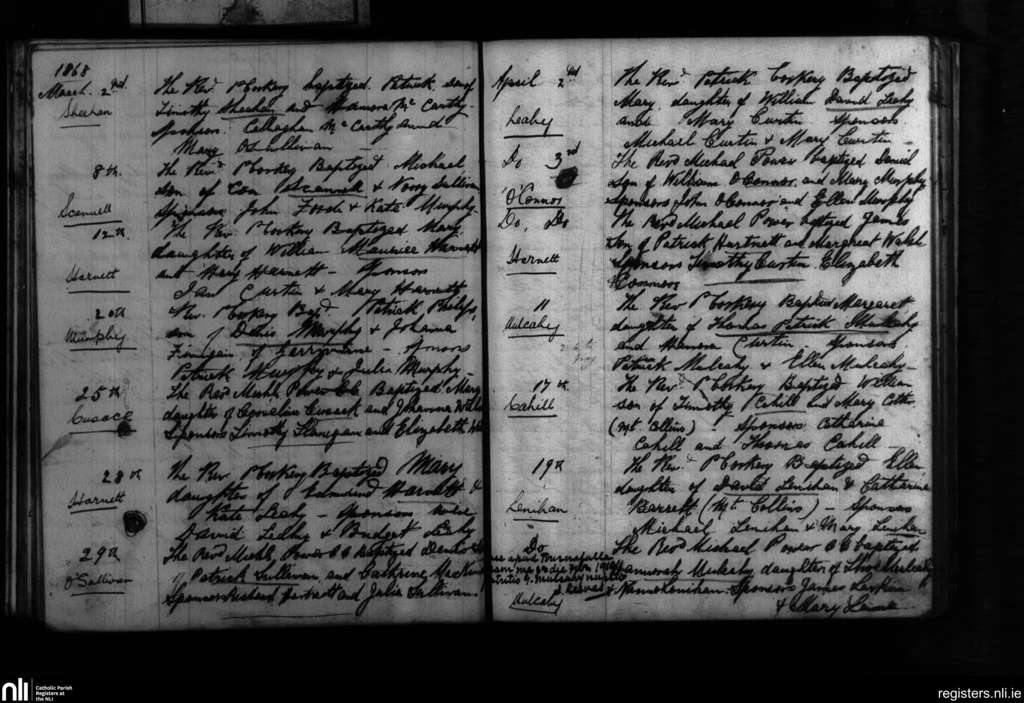 1868
March. 2nd
Sheehan
The Revd P Corkery baptized Patrick son of
Timothy Sheehan and Hanora McCarthy
Sponsors. Callaghan McCarthy and
Mary O'Sullivan
8th.
Scannell
The Revd P Corkery Baptized Michael
son of Con Scannell & Nory Sullivan
Sponsors John & Kate Murphy.
12th
Harnett
The Rev. P Corkery Baptized Mary
daughter of William Maurice Harnett
and Mary Harnett - Sponsors
Curtin & Mary Harnett
20th
Murphy
Rev. P Corkery Bapd. Patrick Philip,
son of Denis Murphy & Johanna
Finigan of - Sponsors
Patrick Murphy & Julia Murphy -
25th
Cusack
The Revd Michl Power CC Baptized Mary
daughter of Cornelius Cusack and Johanna
Sponsors Timothy Flanagan and Elizabeth
28th
Harnett
The Rev P Corkery Baptized Mary
daughter of Edmund Harnett &
Kate Leahy - Sponsors were
David Leahy & Bridget Leahy
29th
O'Sullivan
The Revd Michl Power CC Baptized Denis
of Patrick Sullivan and Cathrine
Sponsors Richard Hartnett and Julia Sullivan.
April 2nd
Leahy
The Revd Patrick Corkery Baptized
Mary, daughter of William David Leahy
and Mary Curtin Sponsors
Michael Curtin & Mary Curtin -
Do 3rd
O'Connor
The Revd Michael Power baptized Daniel
Son of William O'Connor, and Mary Murphy
Sponsors John O'Connor and Ellen Murphy
Do, Do
Harnett
The Revd Michael Power baptized James
Son of Patrick Hartnett and Margreat Walsh
Sponsors Timothy Curtin Elizabeth
Connors
11
Mulcahy
The Rev P Corkery Baptized Margaret
daughter of Thomas Patrick Mulcahy
and Hanora Curtin. Sponsors
Patrick Mulcahy & Ellen Mulcahy -
17th.
Cahill
The Revd P Corkery Baptized William
son of Timothy Cahill and Mary
(Mt Collins) Sponsors Catharine
Cahill and Thomas Cahill -
19th
Lenihan
The Revd P Corkery Baptized Ellen
daughter of David Lenihan & Catharine
Barrett (Mt Collins) - Sponsors
Michael Lenihan & Mary Lenihan
Do
Mulcahy
The Revd Michael Power CC baptized
Hannorah Mulcahy daughter of
& Lenihan. Sponsors James Larkin
& Mary
nli
Catholic Parish
Registers at
the NLI
registers.nli.ie